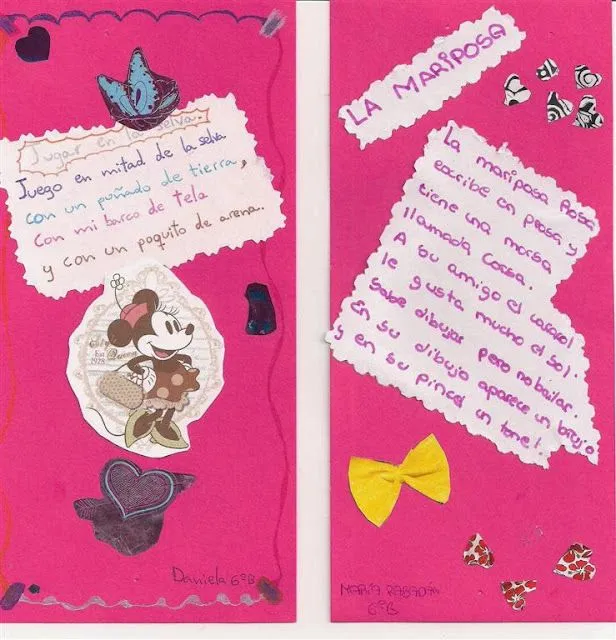 Jugar en la selva.
Juego en mitad de la selva
con un puñado de tierra,
con mi barco de tela
y con un poquito de arena.
Est.
1928
Queen
Daniela 6ºB
LA MARIPOSA
La mariposa Rosa
escribe en prosa y
tiene una morsa
llamada Cossa.
A su amigo el caracol
le gusta mucho el sol.
Sabe dibujar pero no bailar.
En su dibujo aparece un brujo
y en su pincel un tonel.
MARÍA RABADÁN
6ºB